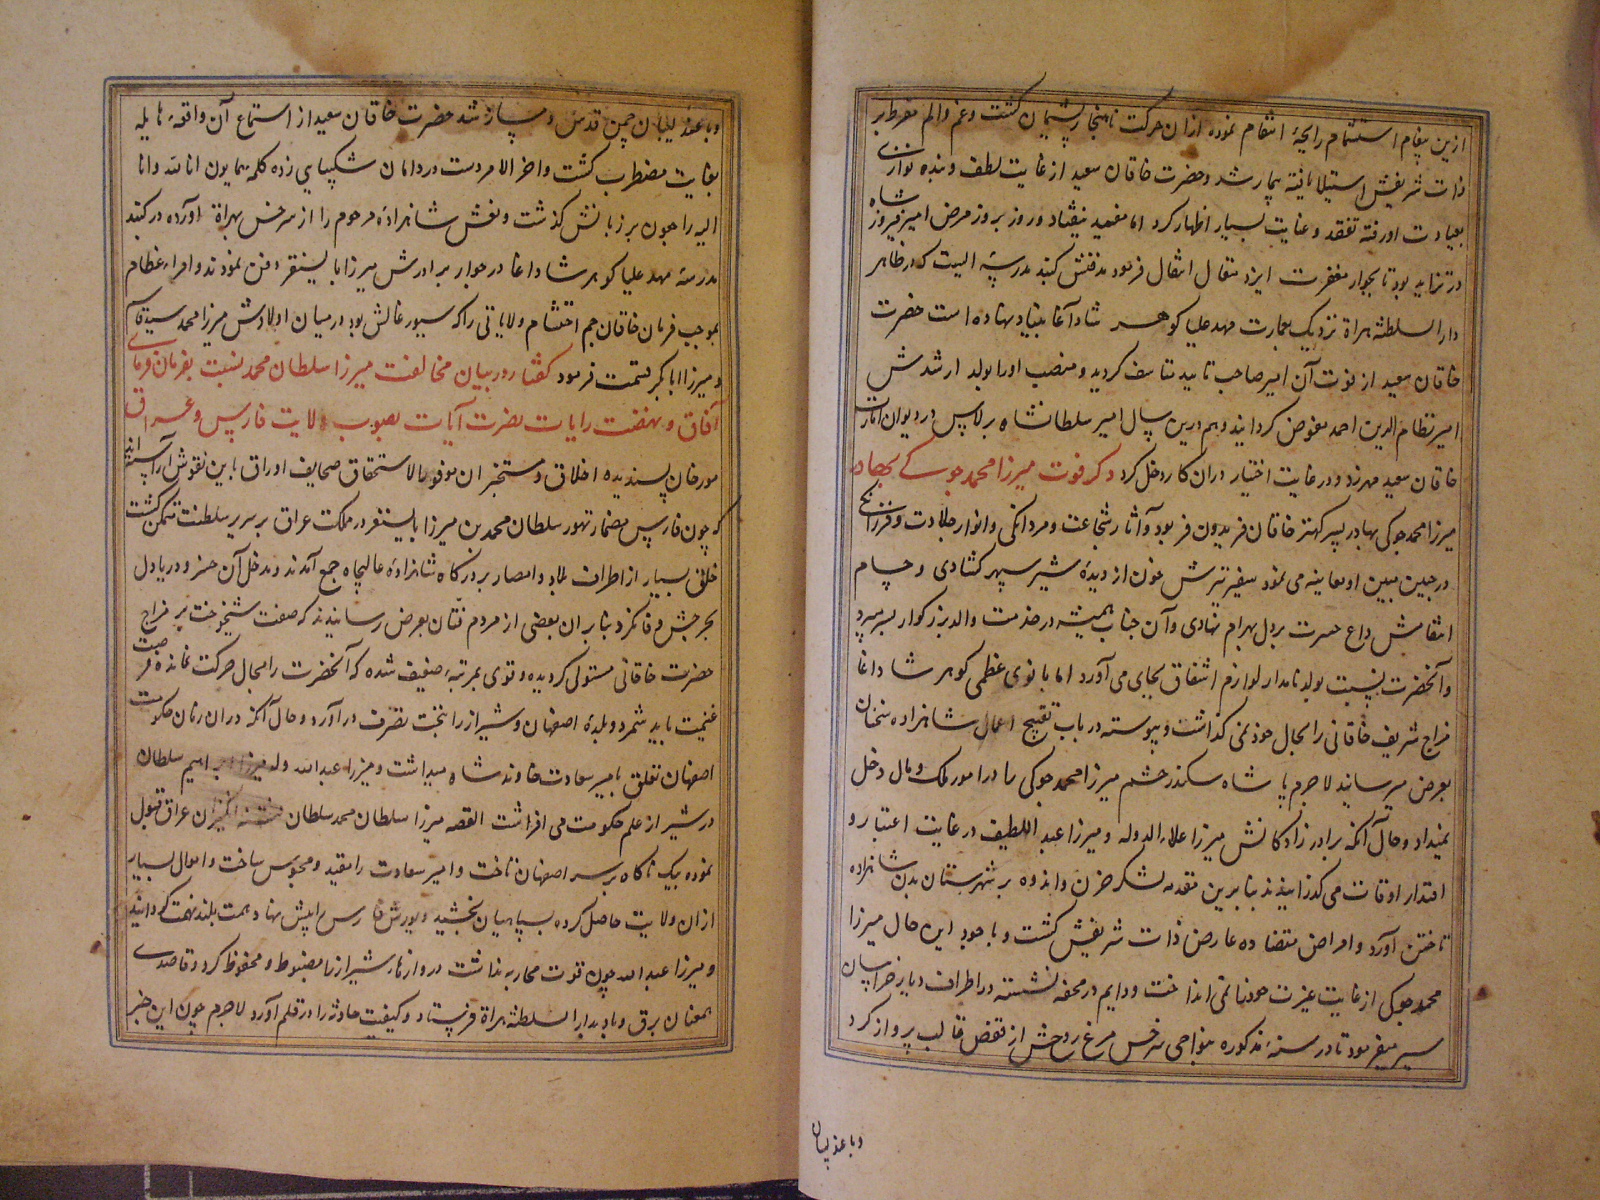 ازین پیغام استشمام رایحهٔ انتقام نموده ازان حرکت ناهنجار پشیمان کشت و غم و الم مفرط بر
ذات شریفش استیلا یافته بیمار شد و حضرت خاقان سعید از غایت لطف و بنده نوازی
بعیادت او رفته تفقد و عنایت بسیار اظهار کرد اما مفید نیفتاد و روز بروز مرض امیر فیروز شاه
در تزاید بود تا بجوار مغفرت ایزد متعال انتقال فرمود مدفنش کنبد مدرسه ایست که در ظاهر
دار السلطنه هراة نزدیک بعمارت مهد علیا کوهر شاد آغا بنیاد نهاده است حضرت
خاقان سعید از فوت آن امیر صاحب تایید متاسف کردید و منصب او را بولد ارشدش
امیر نظام الدین احمد مفوض کردانید و هم درین سال امیر سلطانشاه برلاس در دیوان امارت
خاقان سعید مهر زد و در غایت اختیار دران کار دخل کرد ذکر فوت میرزا محمد جوکی بهادر
میرزا محمد جوکی بهادر پسر کهتر خاقان فریدون فر بود و آثار شجاعت و مردانکی و انوار جلادت و فرزانکی
در جبین مبین او معاینه می نمود سفیر تیرش خون از دیدهٔ شیر سپهر کشادی و حسام
انتقامش داغ حسرت بر دل بهرام نهادی و آن جناب همیشه در خدمت والد بزرکوار بسر می برد
و آنحضرت بنسبت بولد نامدار لوازم اشفاق بجای می آورد اما بانوی عظمی کوهر شاد اغا
مزاج شریف خاقانی را بحال خود نمی کذاشت و پیوسته در باب تقبیح اعمال شاهزاده سخنان
بعرض میرسانید لاجرم پادشاه سکندر حشم میرزا محمد جوکی را در امور ملک و مال دخل
نمیداد و حال آنکه برادر زادکانش میرزا علاء الدوله و میرزا عبد اللطیف در غایت اعتبار و
اقتدار اوقات می کذرانیدند بنابرین مقدمه لشکر حزن و اندوه بر شهرستان بدن شاهزاده
تاختن آورد و امراض متضاده عارض ذات شریفش کشت و با وجود این حال میرزا
محمد جوکی از غایت غیرت خود را نمی انداخت و دایم در محفه نشسته در اطراف دیار خراسان
سیر میفرمود تا در سنهٔ مذکوره بنواحی سرخس مرغ روحش از قفص قالب پرواز کرد
و با عندلیبان
و با عندلیبان چمن قدس دمساز شد حضرت خاقان سعید از استماع آن واقعهٔ هایله
بغایت مضطرب کشت و اخر الامر دست در دامان شکیبایی زده کلمه همایون انا لله و انا
الیه راجعون بر زبانش کذشت و نعش شاهزادهٔ مرحوم را از سرخس بهراة آورده در کنبد
مدرسهٔ مهد علیا کوهر شاد اغا در جوار برادرش میرزا بایسنقر دفن نمودند و امراء عظام
بموجب فرمان خاقان جم احتشام ولایاتی را که سیورغالش بود در میان اولادش میرزا محمد
و میرزا ابابکر قسمت فرمود کفتار در بیان مخالفت میرزا سلطان محمد نسبت بفرمان فرمای
آفاق و نهضت رایات نصرت آیات بصوب ولایت فارس و عراق
مورخان پسندیده اخلاق و مستخبران موفور الاستحقاق صحایف اوراق باین نقوش آراسته اند
که چون فارس مضمار تهور سلطان محمد بن میرزا بایسنقر در مملکت عراق بر سریر سلطنت متمکن کشت
خلقی بسیار از اطراف بلاد و امصار بر درکاه شاهزادهٔ عالیجاه جمع آمدند و مدخل آن خسرو دریا دل
بخرجش وفا نکرد بنابران بعضی از مردم فتان بعرض رسانیدند که صفت شیخوخت بر مزاج
حضرت خاقانی مستولی کردیده و قوی بمرتبهٔ ضعیف شده که آنحضرت را مجال حرکت نمانده فرصت
غنیمت باید شمرد و بلدهٔ اصفهان و شیراز را بتحت تصرف درآورد و حال آنکه دران زمان حکومت
اصفهان تعلق بامیر سعادت خاوند شاه میداشت و میرزا عبد الله ولد میرزا ابراهیم سلطان
در شیراز علم حکومت می افراشت القصه میرزا سلطان محمد سلطان فتنه انکیزان عراق قبول
نموده بیک ناکاه بر سر اصفهان تاخت و امیر سعادت را مقید و محبوس ساخت و اموال بسیار
ازان ولایت حاصل کرده بسپاهیان بخشید و یورش فارس را پیش نهاد همت بلند نهمت کردانید
و میرزا عبد الله چون قوت محاربه نداشت دروازهاء شیراز را مضبوط و محفوظ کرد و قاصدی
همعنان برق و باد بدار السلطنه هراة فرستاد و کیفیت حادثه را در قلم آورد لاجرم چون این خبر